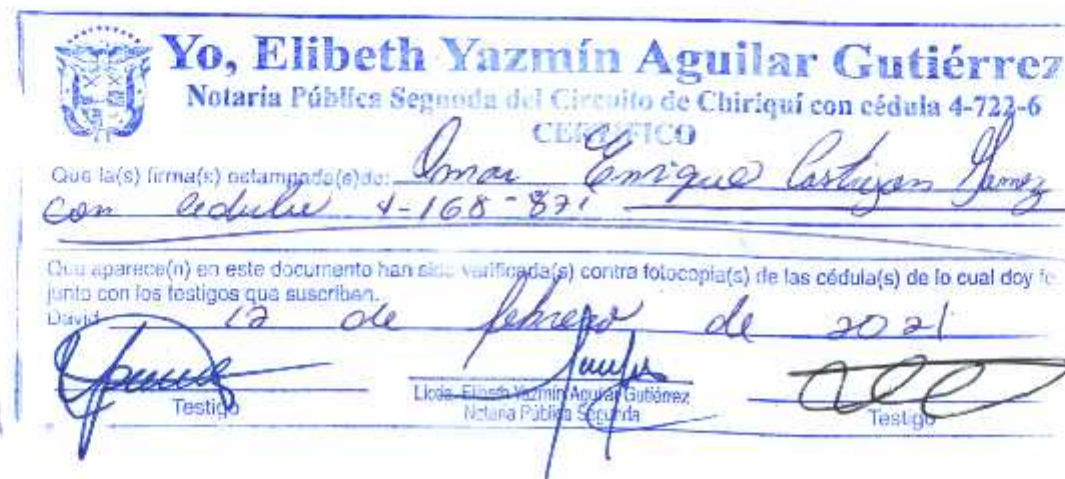 Yo, Elibeth Yazmín Aguilar Gutiérrez
Notaria Pública Segunda del Circuito de Chiriquí con cédula 4-722-6
CERTIFICO
Que la(s) firma(s) estampada(s) de: Omar Enrique Castrejon Gamez
con cedula 4-168-871
Que aparece(n) en este documento han sido verificada(s) contra fotocopia(s) de las cédula(s) de lo cual doy fe
junto con los testigos que suscriben.
David 12 de febrero de 2021
Testigo
Licda. Elibeth Yazmín Aguilar Gutiérrez
Notaria Pública Segunda
Testigo